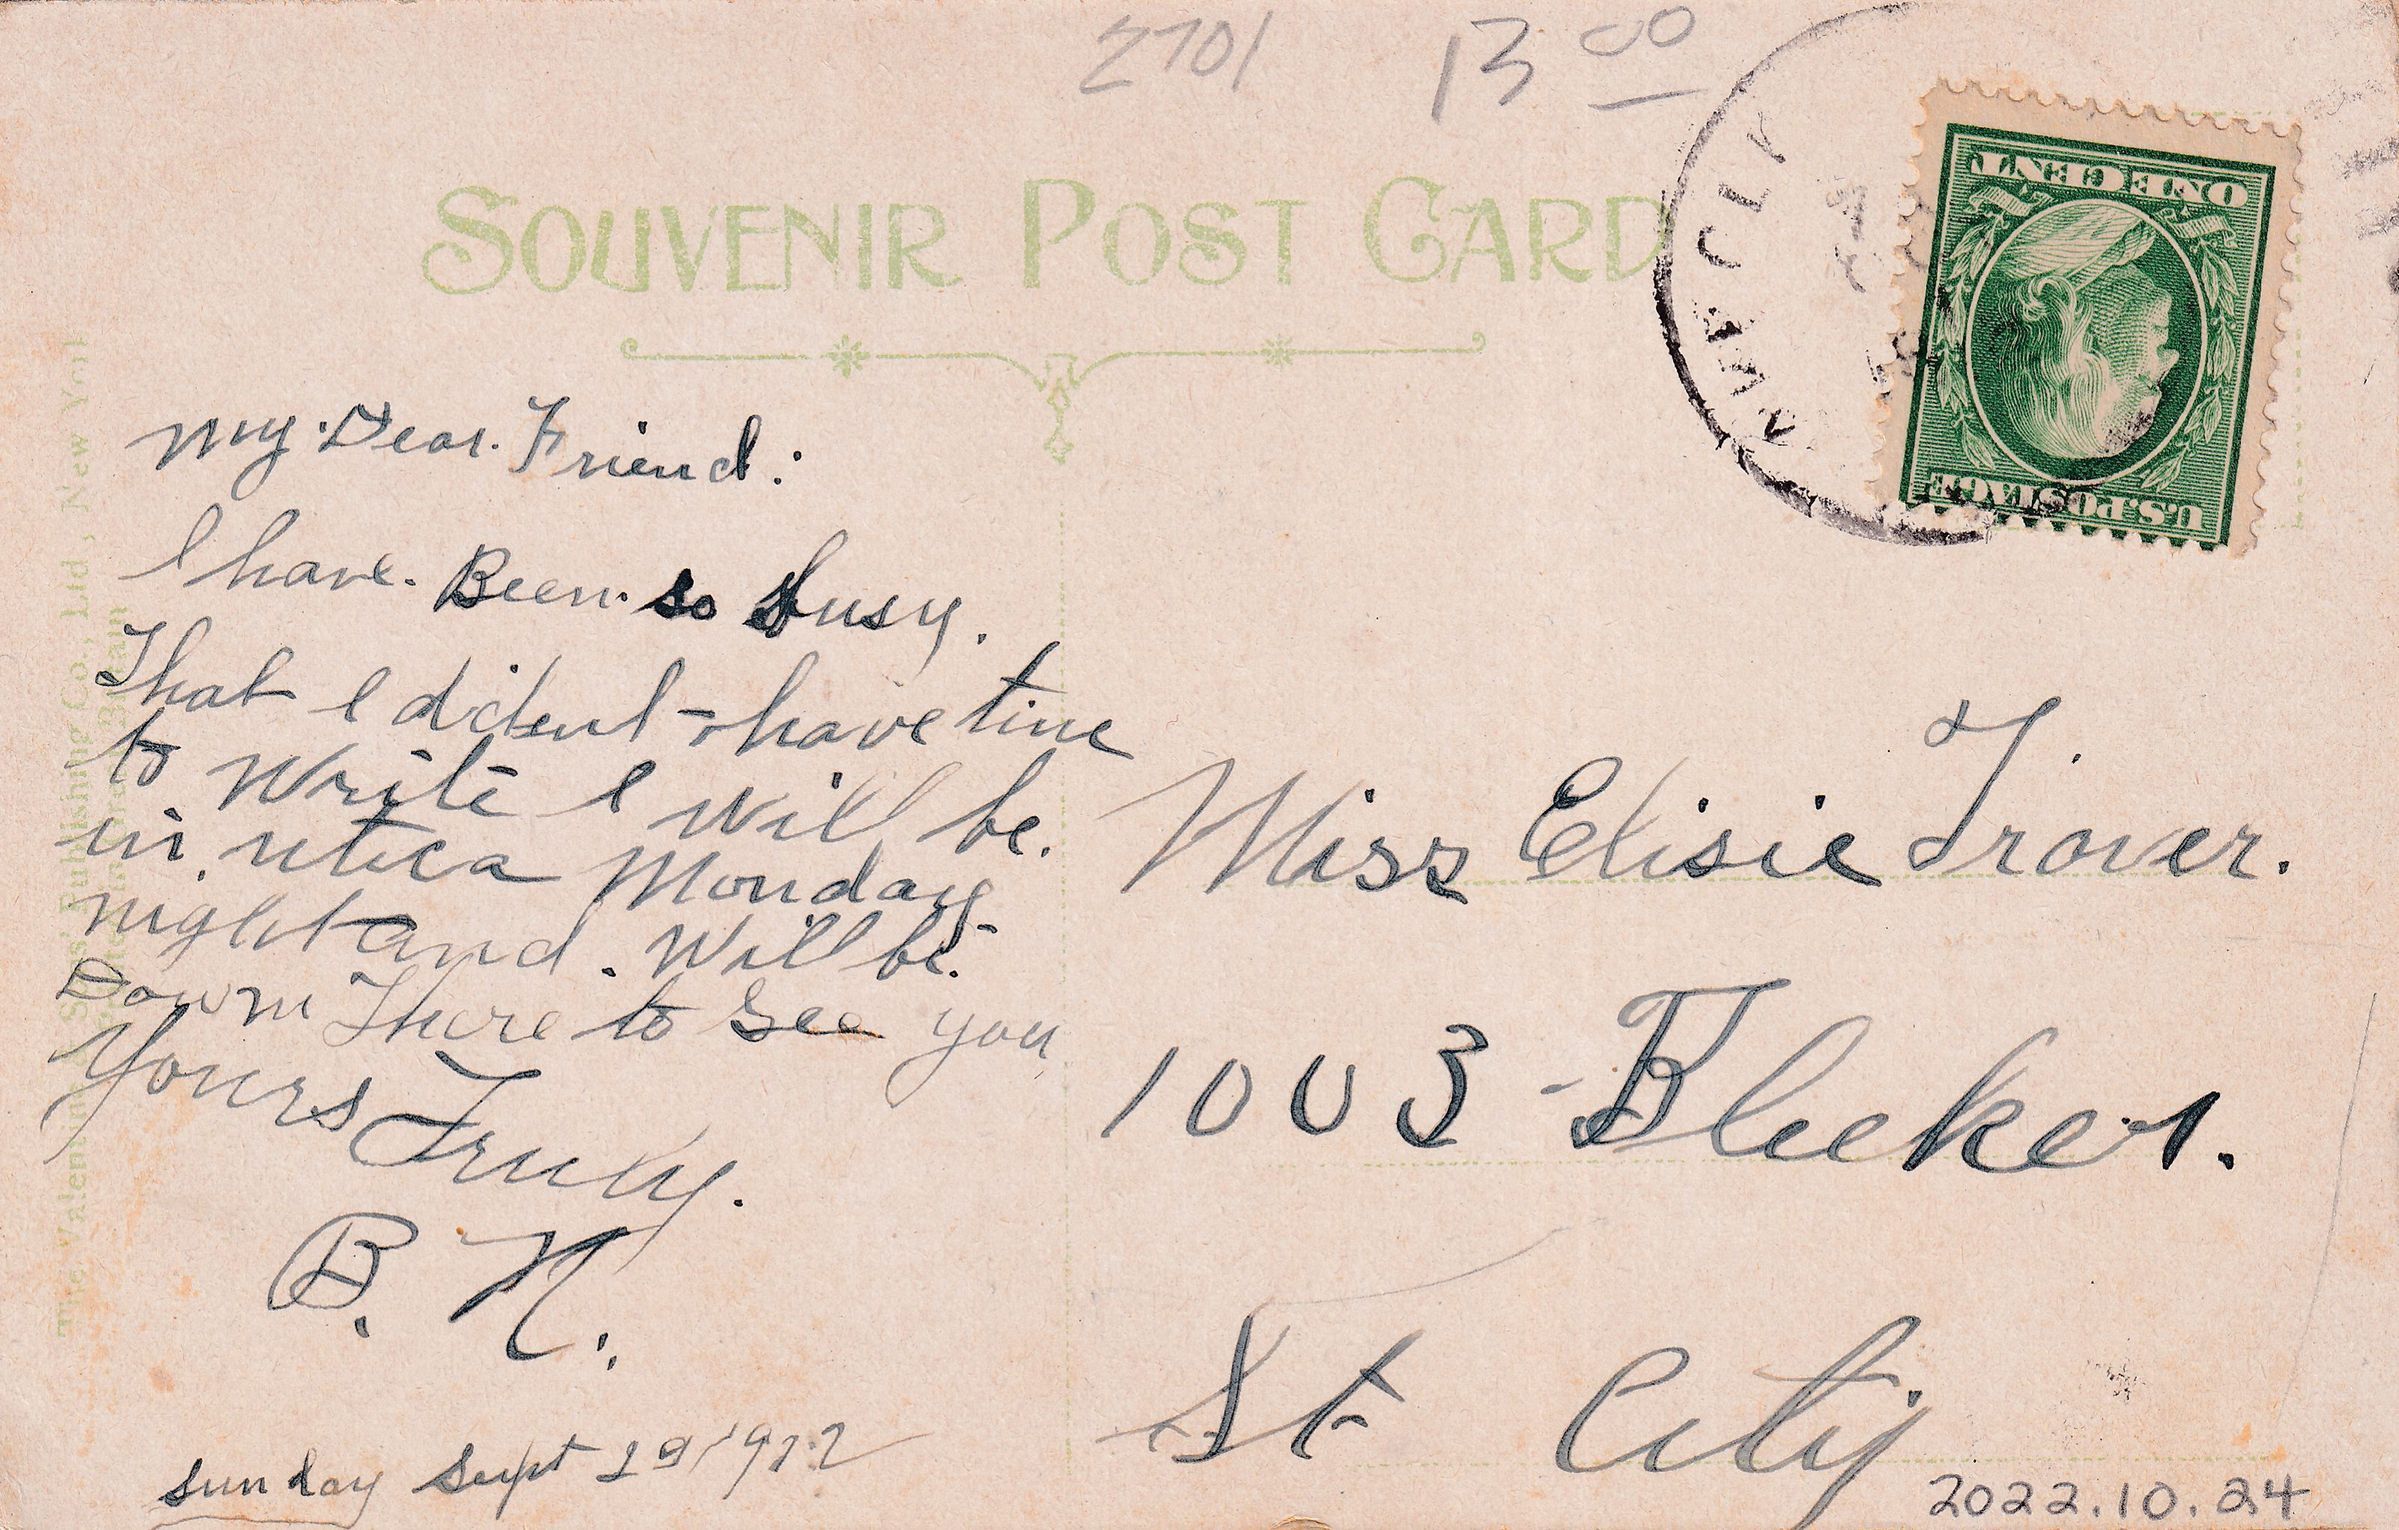 2701 13 00
SOUVENIR POST CARD
ONE CENT
U.S. POSTAGE
My Dear Friend:
I have Been so busy.
That I dident have time
to Write I will be.
in utica Monday
night and. Will be
Down There to See you
Yours Truly.
B. N.
sunday Sept 29 1912
Miss Elisie Trover.
1003 Bleeker.
St City
2022.10.24
The Valentine & Sons' Publishing Co., Ltd., New York